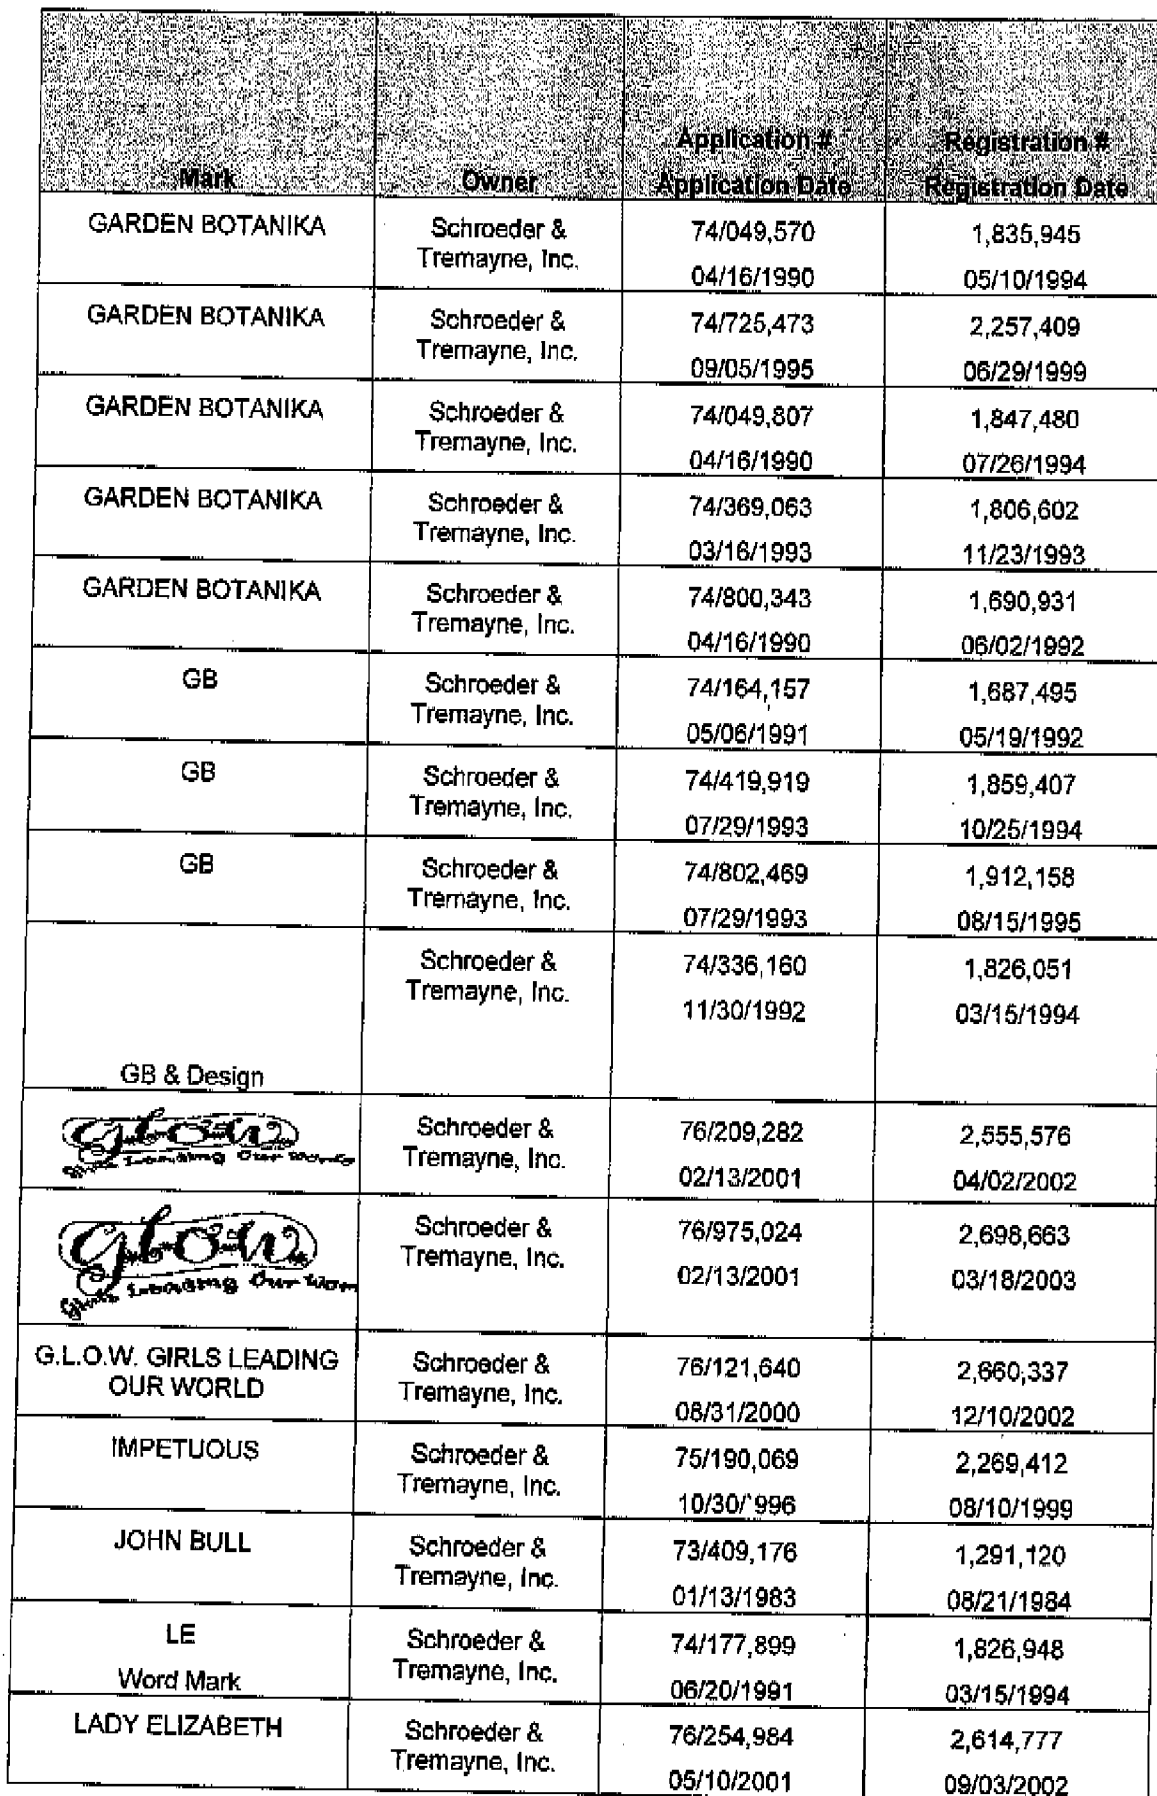 Mark
Owner
Application #
Application Date
Registration #
Registration Date
GARDEN BOTANIKA
Schroeder &
Tremayne, Inc.
74/049,570
04/16/1990
1,835,945
05/10/1994
GARDEN BOTANIKA
Schroeder &
Tremayne, Inc.
74/725,473
09/05/1995
2,257,409
06/29/1999
GARDEN BOTANIKA
Schroeder &
Tremayne, Inc.
74/049,807
04/16/1990
1,847,480
07/26/1994
GARDEN BOTANIKA
Schroeder &
Tremayne, Inc.
74/369,063
03/16/1993
1,806,602
11/23/1993
GARDEN BOTANIKA
Schroeder &
Tremayne, Inc.
74/800,343
04/16/1990
1,690,931
06/02/1992
GB
Schroeder &
Tremayne, Inc.
74/164,157
05/06/1991
1,687,495
05/19/1992
GB
Schroeder &
Tremayne, Inc.
74/419,919
07/29/1993
1,859,407
10/25/1994
GB
Schroeder &
Tremayne, Inc.
74/802,469
07/29/1993
1,912,158
08/15/1995
GB & Design
Schroeder &
Tremayne, Inc.
74/336,160
11/30/1992
1,826,051
03/15/1994
g.l.o.w.
Girls Leading Our World
Schroeder &
Tremayne, Inc.
76/209,282
02/13/2001
2,555,576
04/02/2002
g.l.o.w.
Girls Leading Our Wor
Schroeder &
Tremayne, Inc.
76/975,024
02/13/2001
2,698,663
03/18/2003
G.L.O.W. GIRLS LEADING
OUR WORLD
Schroeder &
Tremayne, Inc.
76/121,640
08/31/2000
2,660,337
12/10/2002
IMPETUOUS
Schroeder &
Tremayne, Inc.
75/190,069
10/30/`996
2,269,412
08/10/1999
JOHN BULL
Schroeder &
Tremayne, Inc.
73/409,176
01/13/1983
1,291,120
08/21/1984
LE
Word Mark
Schroeder &
Tremayne, Inc.
74/177,899
06/20/1991
1,826,948
03/15/1994
LADY ELIZABETH
Schroeder &
Tremayne, Inc.
76/254,984
05/10/2001
2,614,777
09/03/2002